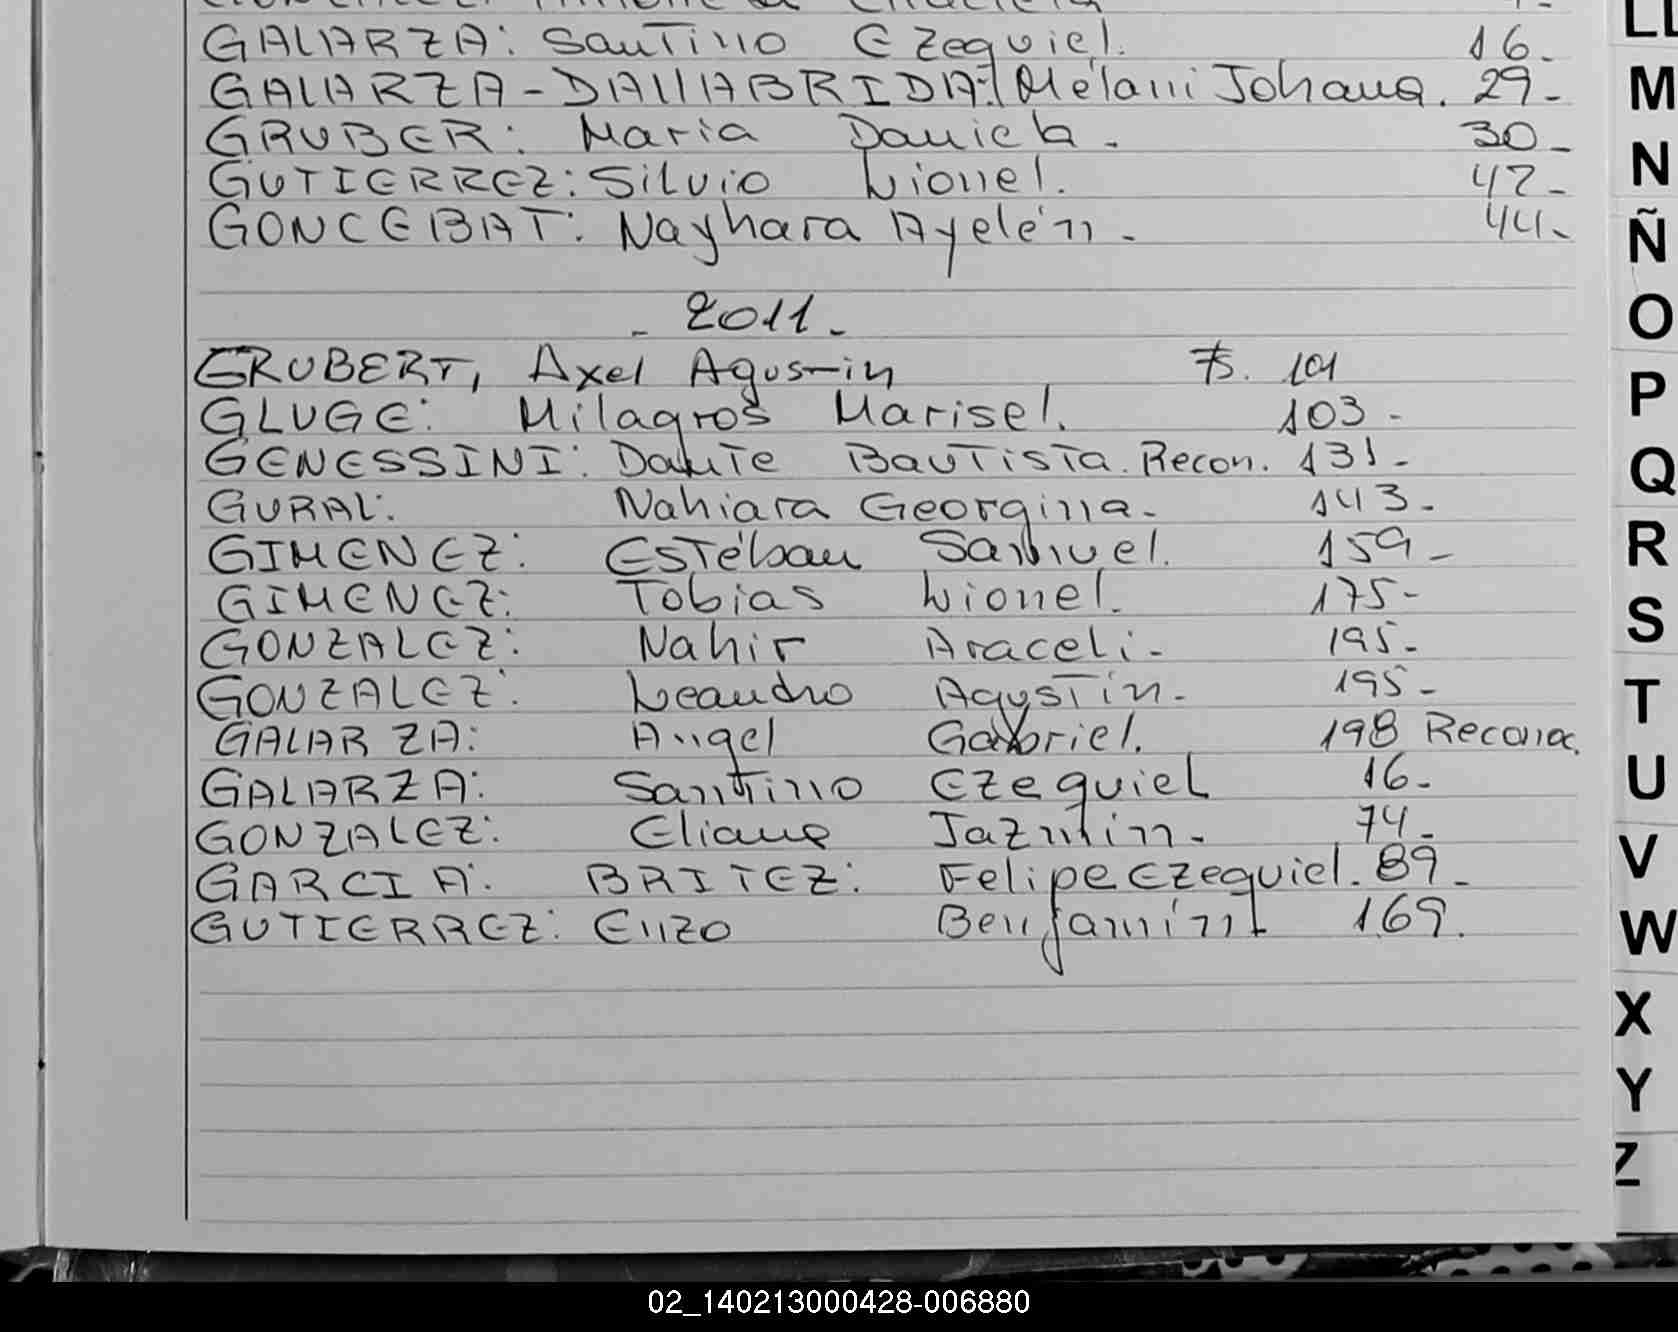 GALARZA: Santino Ezequiel. 16-
GALARZA-DALLABRIDA: Melani Johana. 29-
GRUBER: Maria Daniela. 30-
GUTIERREZ: Silvio Lionel. 42-
GONCEBAT: Nayhara Ayelén. 44-
- 2011 -
GRUBERT, Axel Agustin Fs. 101
GLUGE: Milagros Marisel. 103-
GENESSINI: Dante Bautista. Recon. 131-
GURAL: Nahiara Georgina. 143-
GIMENEZ: Estéban Samuel. 159-
GIMENEZ: Tobias Lionel. 175-
GONZALEZ: Nahir Araceli- 195-
GONZALEZ: Leandro Agustín- 195-
GALARZA: Angel Gabriel. 198 Reconoc.
GALARZA: Santino Ezequiel 16-
GONZALEZ: Eliana Jazmín- 74-
GARCIA: BRITEZ: Felipe Ezequiel. 89-
GUTIERREZ: Enzo Benjamín 169.
LL
M
N
Ñ
O
P
Q
R
S
T
U
V
W
X
Y
Z
02_140213000428-006880